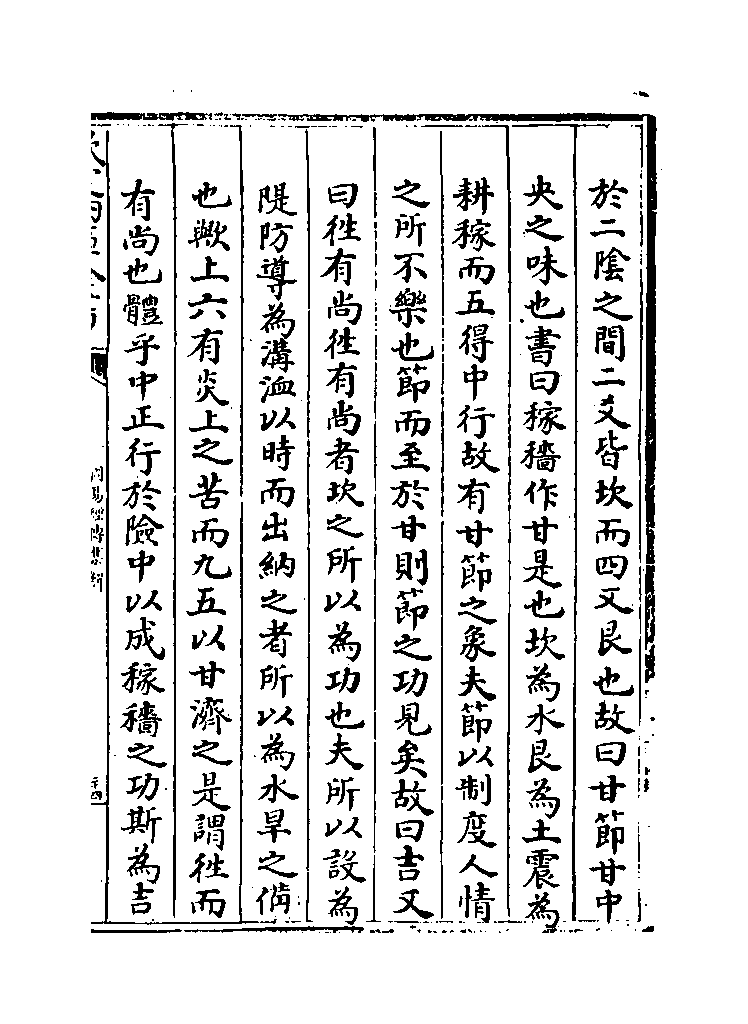 於二陰之間二爻皆坎而四又艮也故曰甘節甘中
央之味也書曰稼穡作甘是也坎為水艮為土震為
耕稼而五得中行故有甘節之象夫節以制度人情
之所不樂也節而至於甘則節之功見矣故曰吉又
曰徃有尚徃有尚者坎之所以為功也夫所以設為
隄防導為溝洫以時而出納之者所以為水旱之備
也歟上六有炎上之苦而九五以甘濟之是謂徃而
有尚也體乎中正行於險中以成稼穡之功斯為吉
周易經傳集解